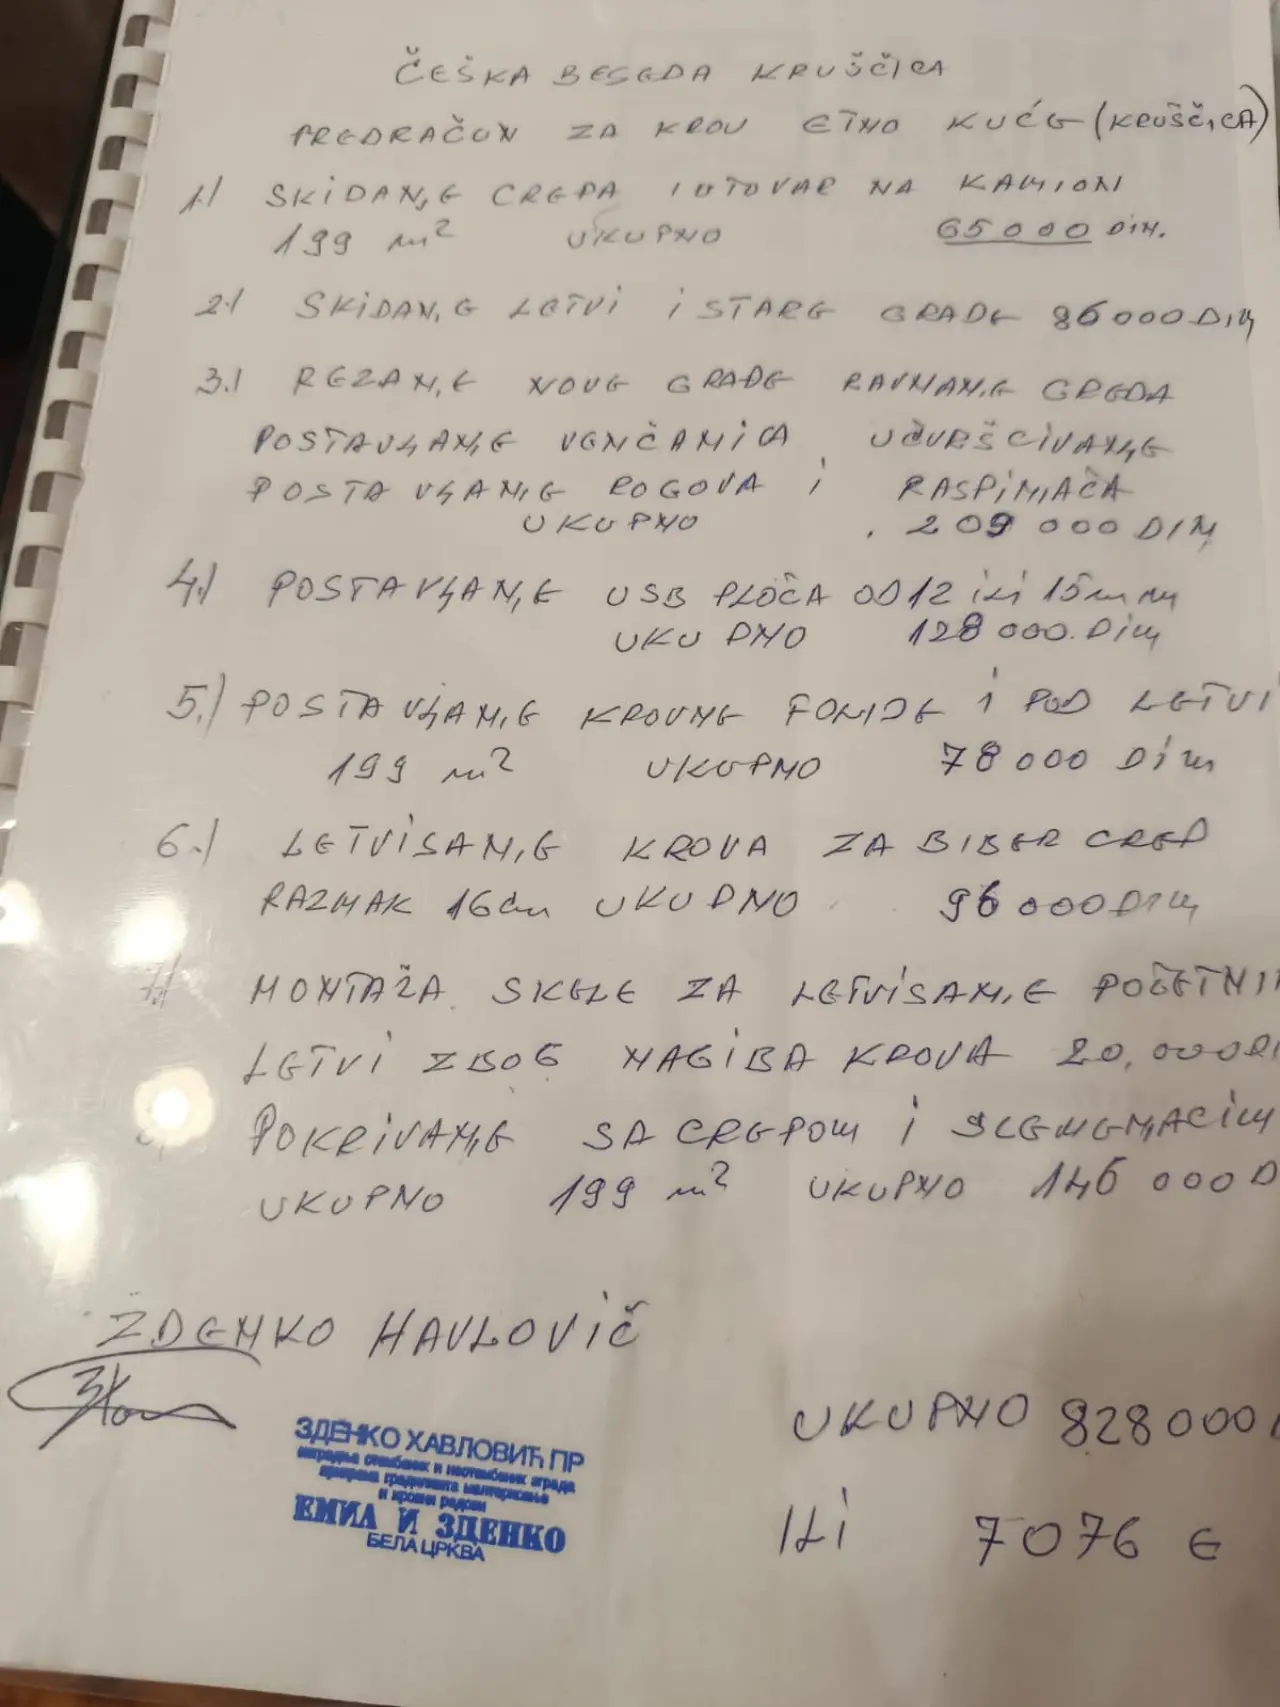 ČEŠKA BESEDA KRUŠČICA
PREDRAČUN ZA KROV ETNO KUĆE (KRUŠČICA)
1.) SKIDANJE CREPA I UTOVAR NA KAMION
199 m² UKUPNO 65000 DIN.
2.) SKIDANJE LETVI I STARE GRAĐE 86000 DIN
3.) REZANJE NOVE GRAĐE RAVNANJE GREDA
POSTAVLJANJE VENČANICA UČVRŠCIVANJE
POSTAVLJANJE ROGOVA I RASPINJAČA
UKUPNO 209 000 DIN
4.) POSTAVLJANJE USB PLOČA OD 12 ILI 15mm
UKUPNO 128 000. DIN
5.) POSTAVLJANJE KROVNE FOLIJE I POD LETVI
199 m² UKUPNO 78 000 DIN
6.) LETVISANJE KROVA ZA BIBER CREP
RAZMAK 16cm UKUPNO 96 000 DIN
7.) MONTAŽA SKELE ZA LETVISANJE POČETNI
LETVI ZBOG NAGIBA KROVA 20.000 DI
POKRIVANJE SA CREPOM I SLEMENJACIM
UKUPNO 199 m² UKUPNO 146 000 D
ZDENKO HAVLOVIČ
UKUPNO 828000
ЗДЕНКО ХАВЛОВИЋ ПР
изградња стамбених и нестамбених зграда
и кровни радови
ЕМИЛ И ЗДЕНКО
БЕЛА ЦРКВА
ILI 7076 €